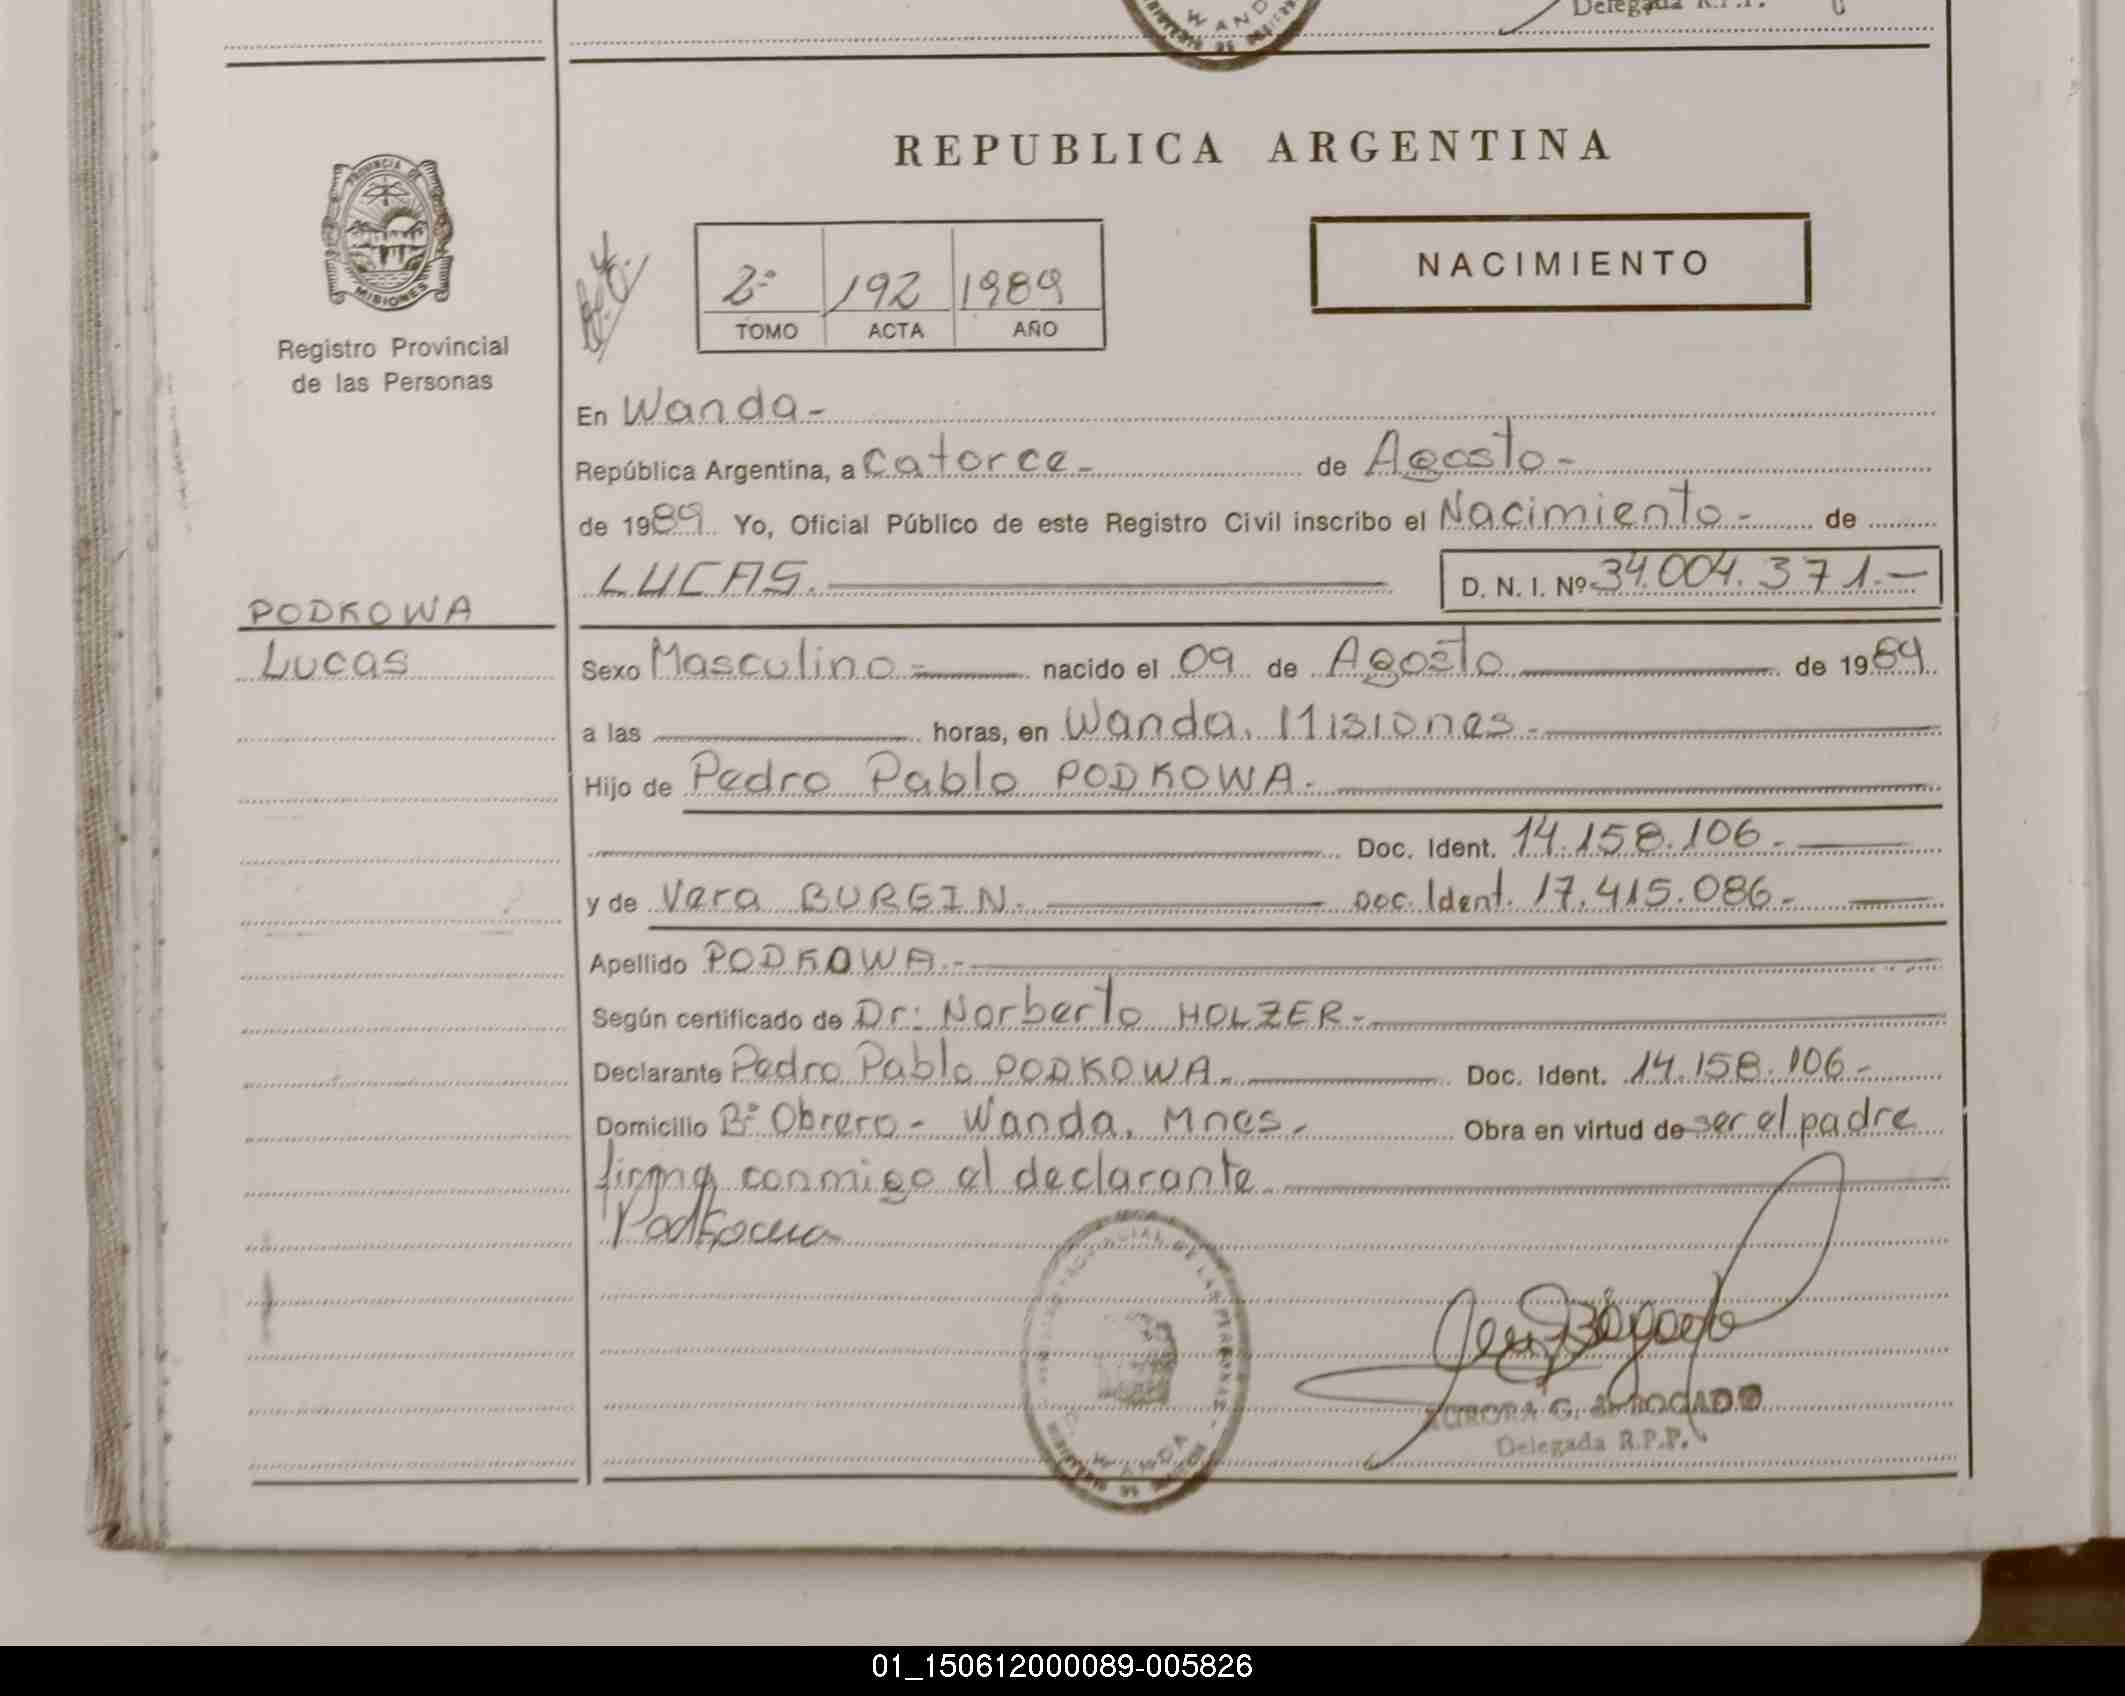 Delegada R.P.P.
WANDA
REPUBLICA ARGENTINA
PROVINCIA DE
MISIONES
Registro Provincial
de las Personas
2º 192 1989
TOMO ACTA AÑO
NACIMIENTO
En Wanda-
República Argentina, a Catorce- de Agosto-
de 1989 Yo, Oficial Público de este Registro Civil inscribo el Nacimiento- de
LUCAS. D. N. I. Nº 34.004.371.-
PODKOWA
Lucas
Sexo Masculino- nacido el 09 de Agosto de 1989
a las horas, en Wanda, Misiones-
Hijo de Pedro Pablo PODKOWA.
Doc. Ident. 14.158.106-
y de Vera BURGIN. Doc. Ident. 17.415.086-
Apellido PODKOWA.-
Según certificado de Dr: Norberto HOLZER-
Declarante Pedro Pablo PODKOWA. Doc. Ident. 14.158.106-
Domicilio Bº Obrero- Wanda, Mnes- Obra en virtud de ser el padre
firma conmigo el declarante
Podkowa
PROVINCIAL DE LAS PERSONAS
WANDA
AURORA G. ABOGADO
Delegada R.P.P.
01_150612000089-005826